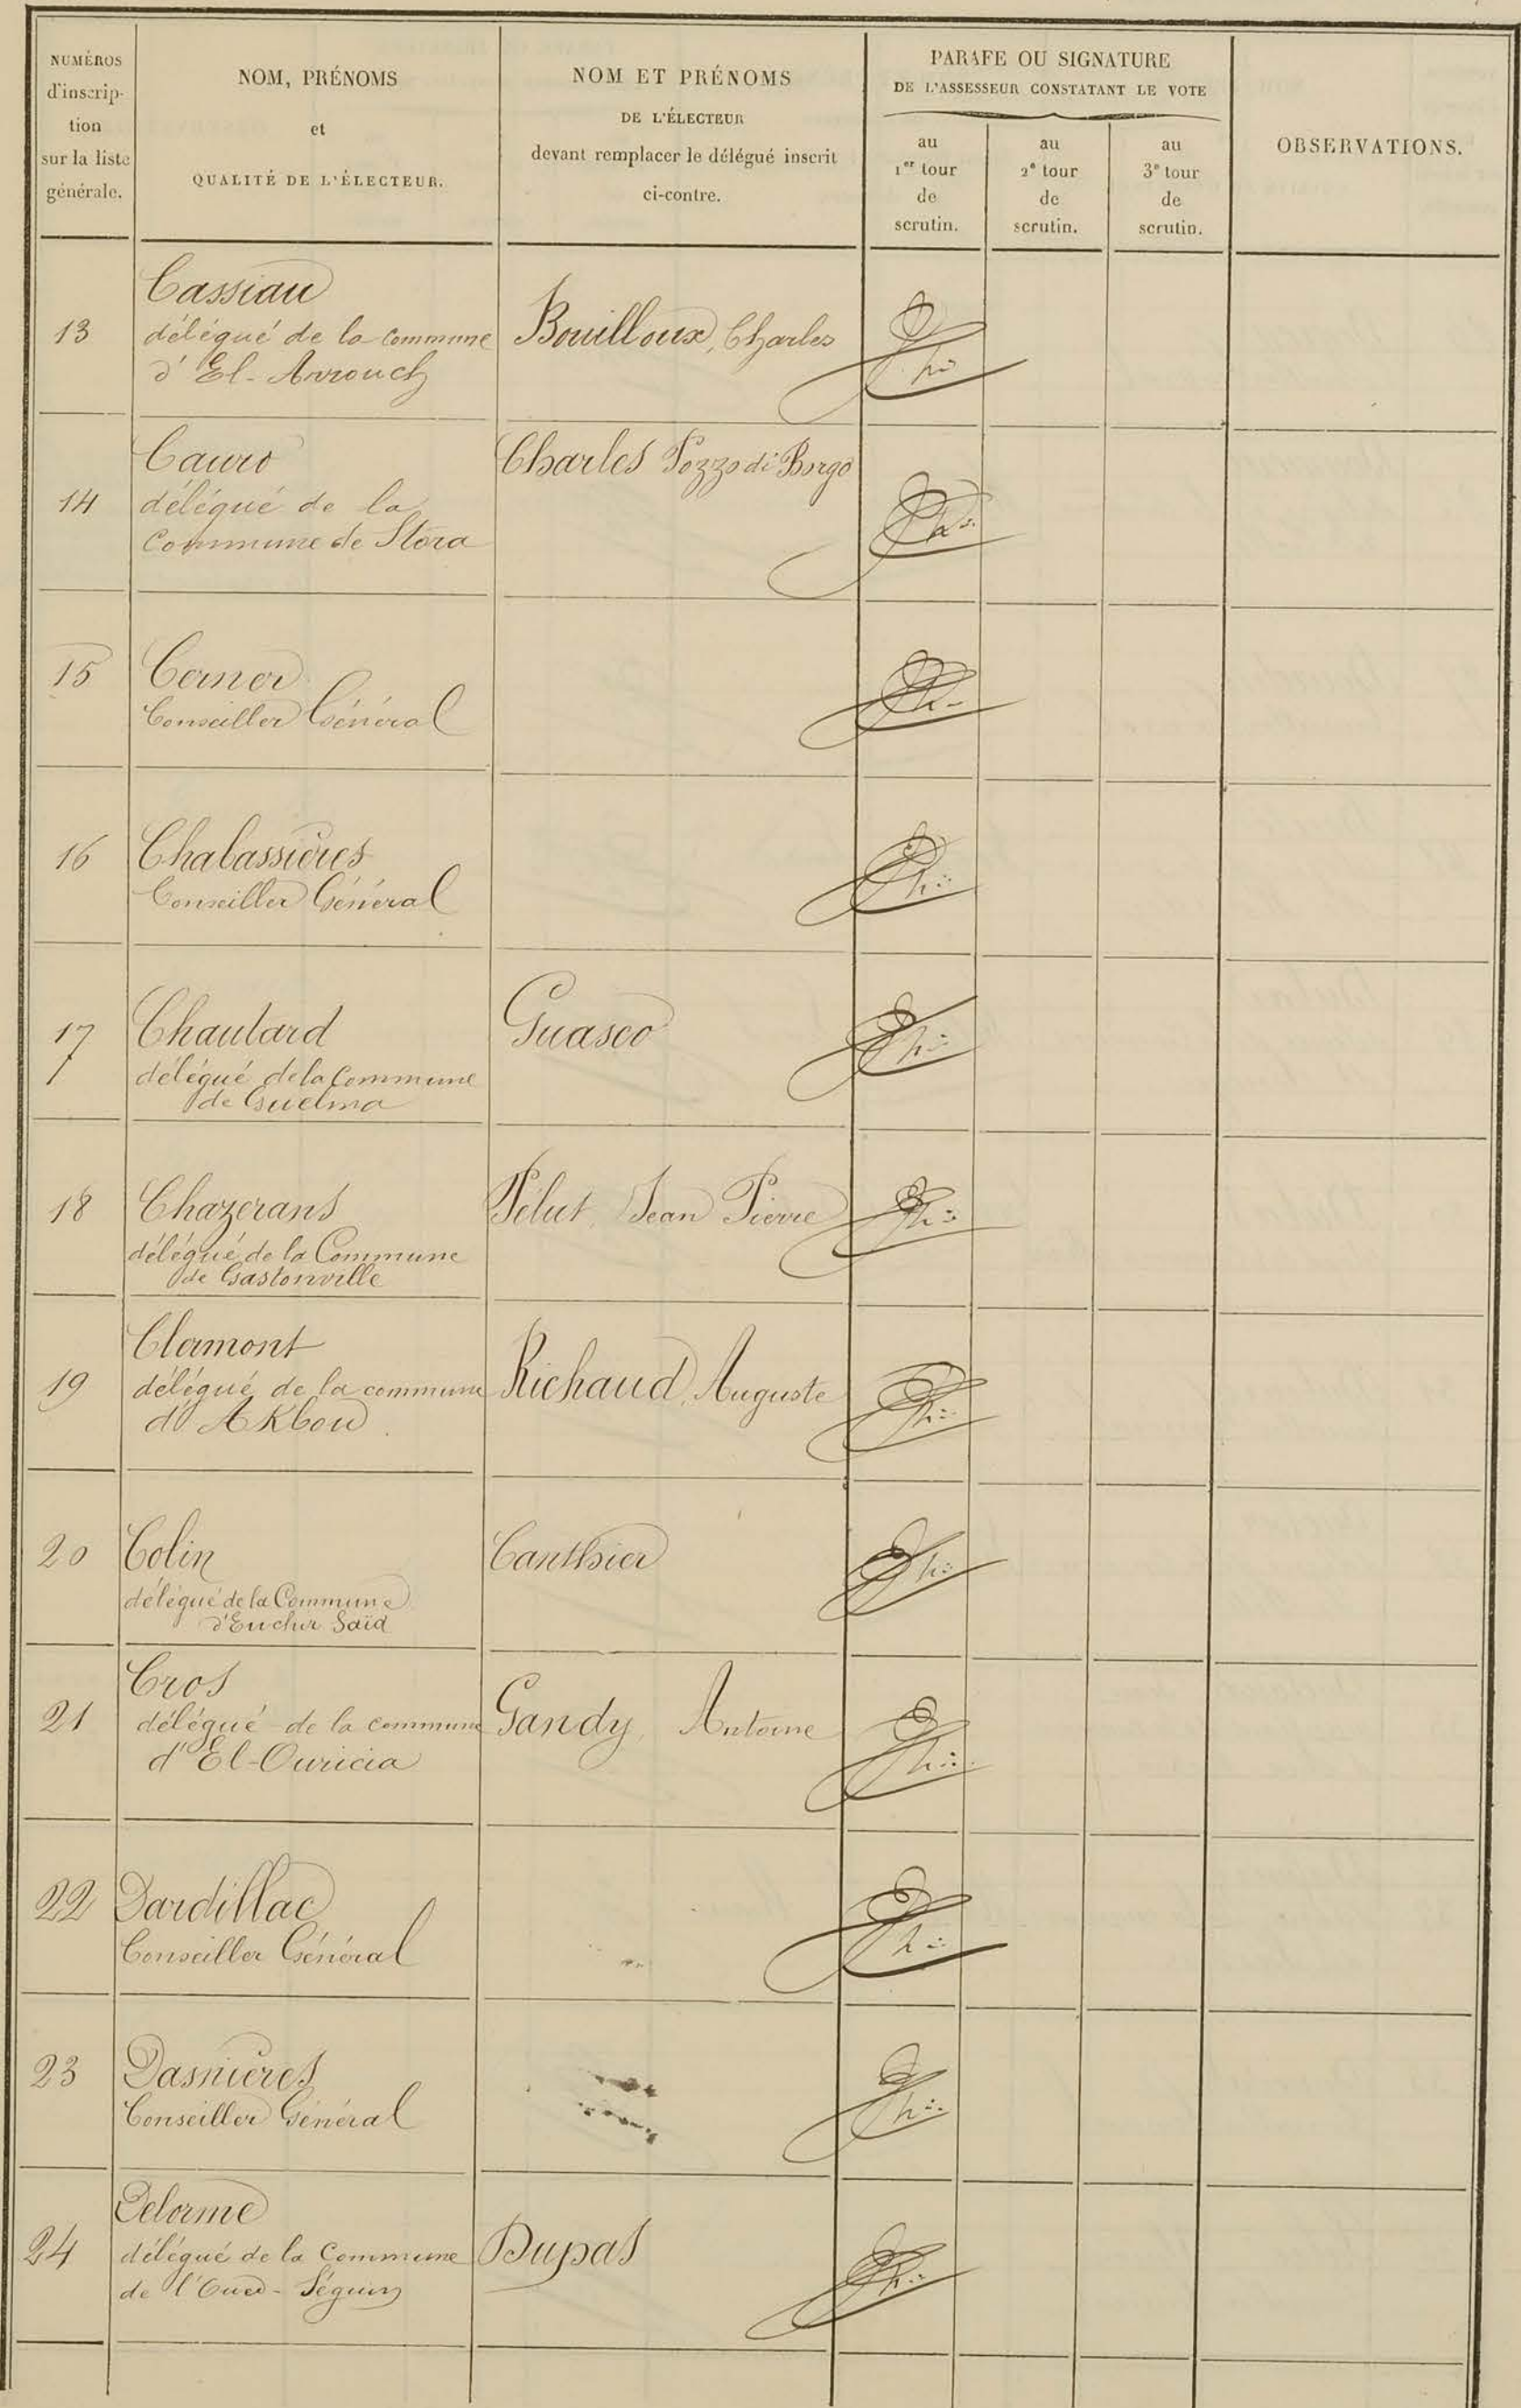 NUMÉROS
d'inscrip-
tion
sur la liste
générale.
NOM, PRÉNOMS
et
QUALITÉ DE L'ÉLECTEUR.
NOM ET PRÉNOMS
DE L'ÉLECTEUR
devant remplacer le délégué inscrit
ci-contre.
PARAFE OU SIGNATURE
DE L'ASSESSEUR CONSTATANT LE VOTE
au
1er tour
de
scrutin.
au
2e tour
de
scrutin.
au
3e tour
de
scrutin.
OBSERVATIONS.
13
Cassiau
délégué de la commune
d'El-Arrouch
Bouilloux, Charles
14
Cauro
délégué de la
Commune de Stora
Charles Pozzo di Borgo
15
Cerner
Conseiller Général
16
Chabassières
Conseiller Général
17
Chautard
délégué de la Commune
de Guelma
Guasco
18
Chazerans
délégué de la Commune
de Gastonville
Pélut, Jean Pierre
19
Clermont
délégué de la commune
d'Akbou
Richaud, Auguste
20
Colin
délégué de la Commune
d'Enchir Saïd
Canthier
21
Cros
délégué de la commune
d'El-Ouricia
Gandy, Antoine
22
Dardillac
Conseiller Général
23
Dasnières
Conseiller Général
24
Delorme
délégué de la Commune
de l'Oued-Séguin
Dupas